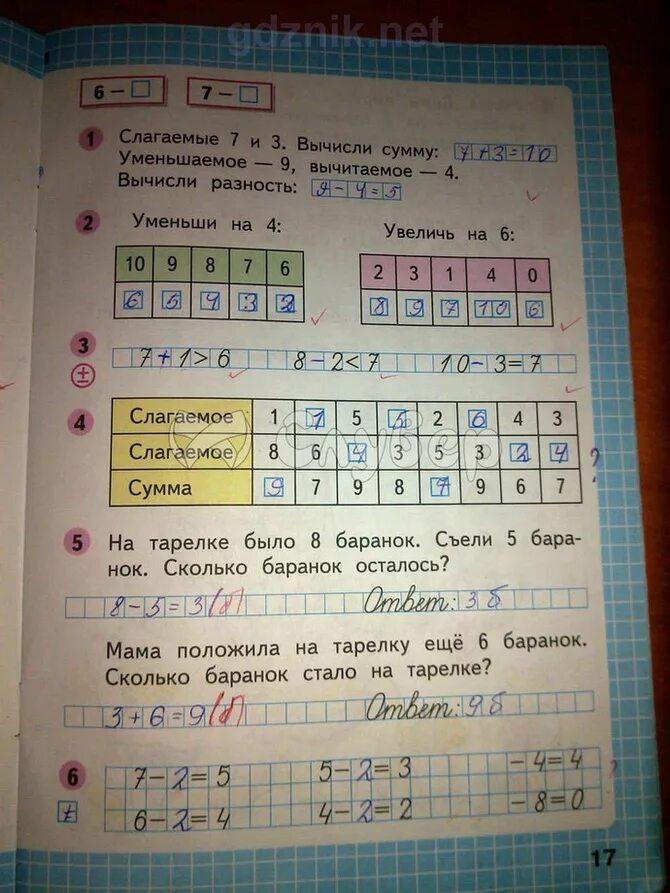 gdznik.net
6 – □ 7 – □
1 Слагаемые 7 и 3. Вычисли сумму: 7+3=10
Уменьшаемое — 9, вычитаемое — 4.
Вычисли разность: 9-4=5
2 Уменьши на 4: Увеличь на 6:
10 9 8 7 6 2 3 1 4 0
6 5 4 3 2 8 9 7 10 6
3 7+1>6 8-2<7 10-3=7
±
4 Слагаемое 1 1 5 5 2 6 4 3
Слагаемое 8 6 4 3 5 3 2 4 ?
Сумма 9 7 9 8 7 9 6 7
5 На тарелке было 8 баранок. Съели 5 бара-
нок. Сколько баранок осталось?
8-5=3(б) Ответ: 3 б
Мама положила на тарелку ещё 6 баранок.
Сколько баранок стало на тарелке?
3+6=9(б) Ответ: 9 б
6 7-2=5 5-2=3 -4=4
6-2=4 4-2=2 -8=0
17